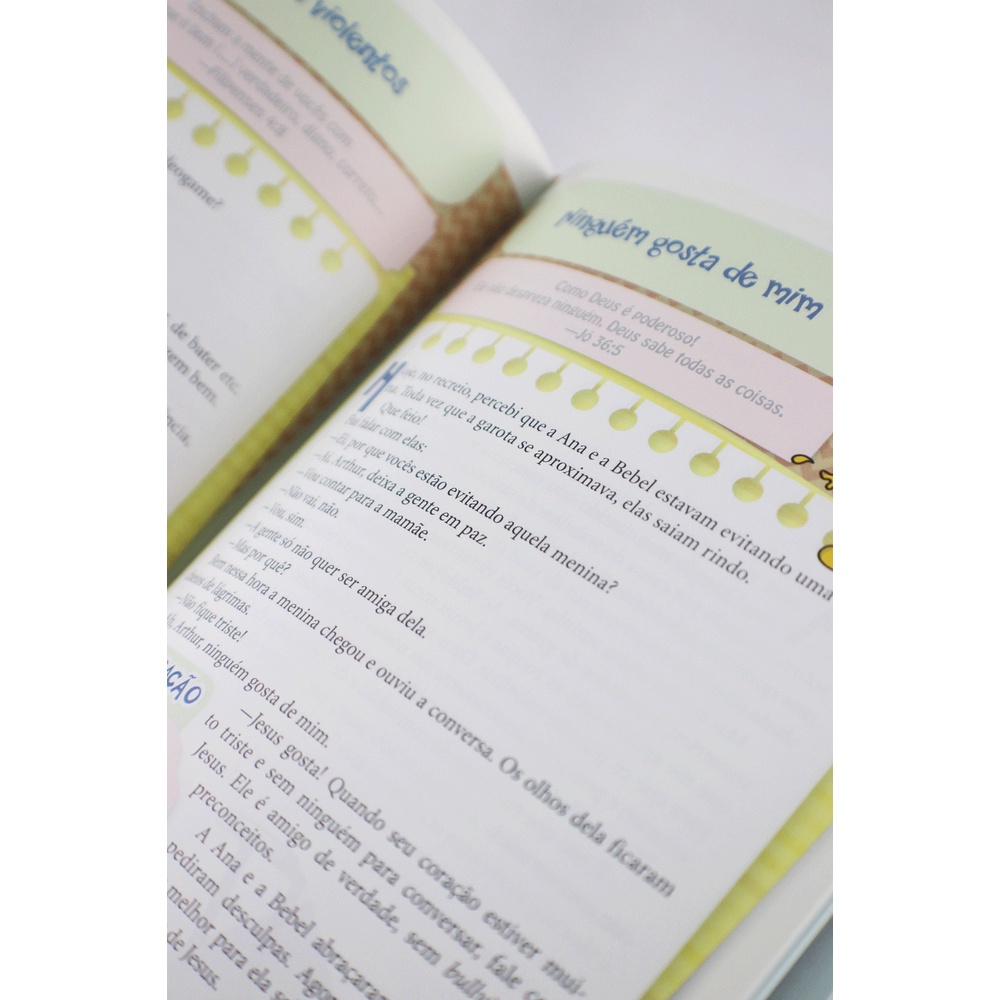 violentos
Encham a mente de vocês com
que é bom (...) verdadeiro, digno, correto...
—Filipenses 4:8
videogame?
de bater etc.
zem bem.
Ninguém gosta de mim
Como Deus é poderoso!
Ele não despreza ninguém. Deus sabe todas as coisas.
—Jó 36:5
Hoje, no recreio, percebi que a Ana e a Bebel estavam evitando uma
Toda vez que a garota se aproximava, elas saiam rindo.
Que feio!
Fui falar com elas:
—Ei, por que vocês estão evitando aquela menina?
—Ai, Arthur, deixa a gente em paz.
—Vou contar para a mamãe.
—Não vai, não.
—Vou, sim.
—A gente só não quer ser amiga dela.
—Mas por quê?
Bem nessa hora a menina chegou e ouviu a conversa. Os olhos dela ficaram
cheios de lágrimas.
—Não fique triste!
Ah, Arthur, ninguém gosta de mim.
—Jesus gosta! Quando seu coração estiver mui-
to triste e sem ninguém para conversar, fale
Jesus. Ele é amigo de verdade, sem
preconceitos.
A Ana e a Bebel abraçaram
pediram desculpas.
melhor para ela
de Jesus.